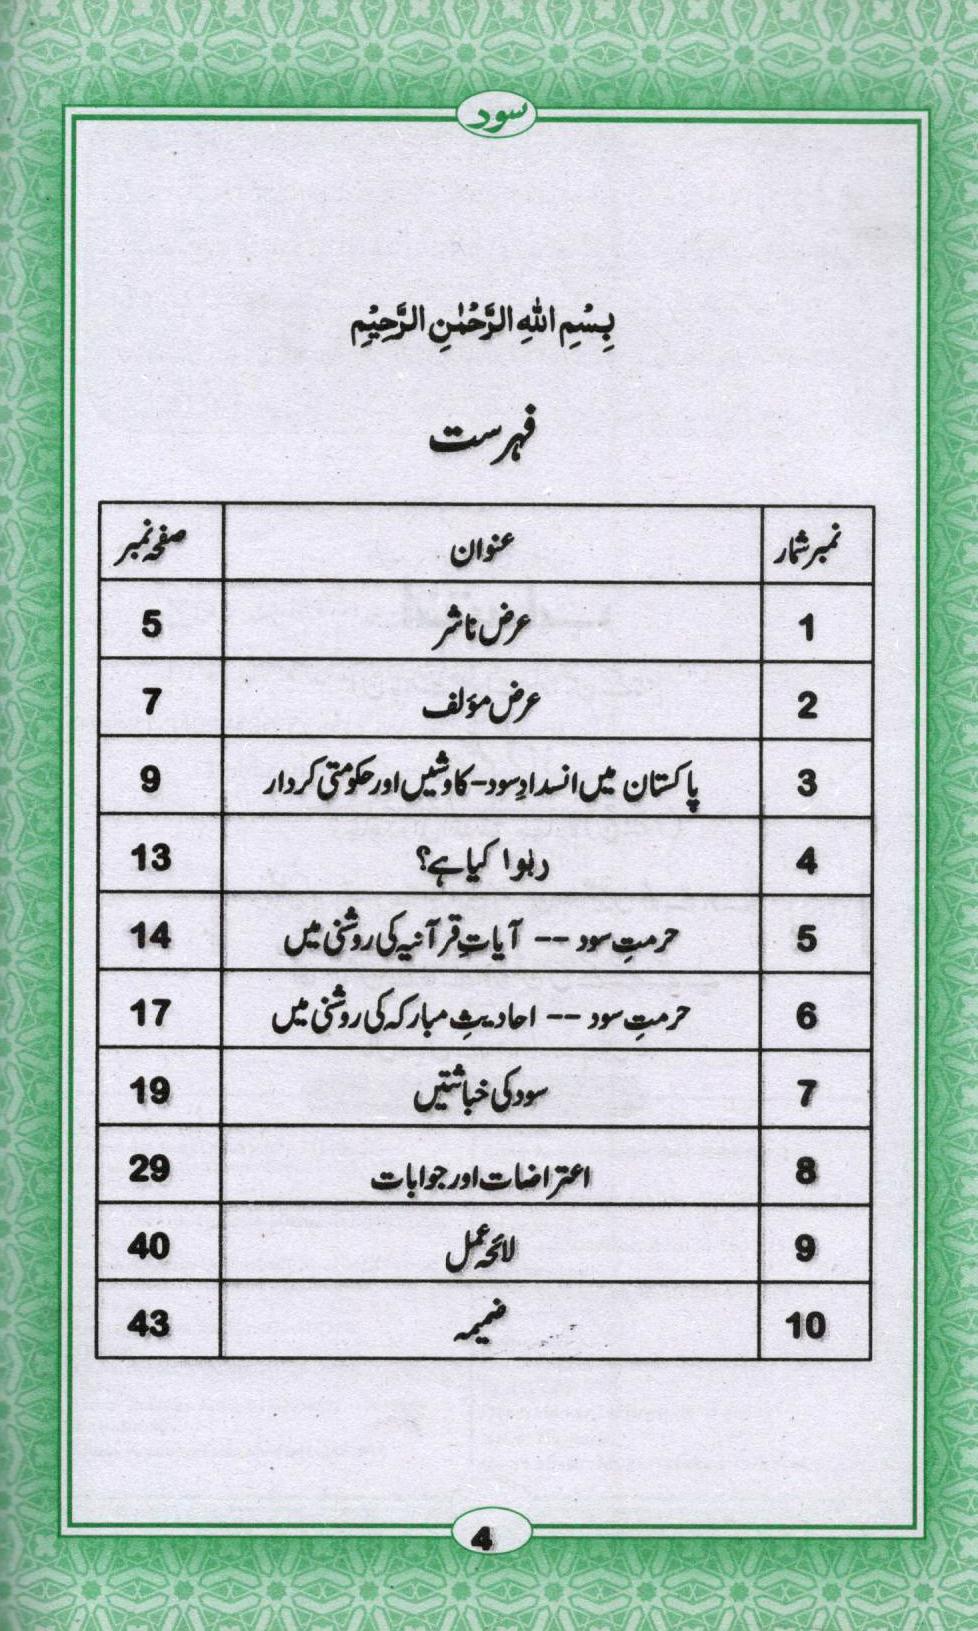 سود
بِسْمِ اللهِ الرَّحْمٰنِ الرَّحِيْمِ
فہرست
نمبر شمار عنوان صفحہ نمبر
1 عرض ناشر 5
2 عرض مؤلف 7
3 پاکستان میں انسدادِ سود - کاوشیں اور حکومتی کردار 9
4 ربوا کیا ہے؟ 13
5 حرمتِ سود -- آیاتِ قرآنیہ کی روشنی میں 14
6 حرمتِ سود -- احادیثِ مبارکہ کی روشنی میں 17
7 سود کی خباثتیں 19
8 اعتراضات اور جوابات 29
9 لائحہ عمل 40
10 ضمیمہ 43
4